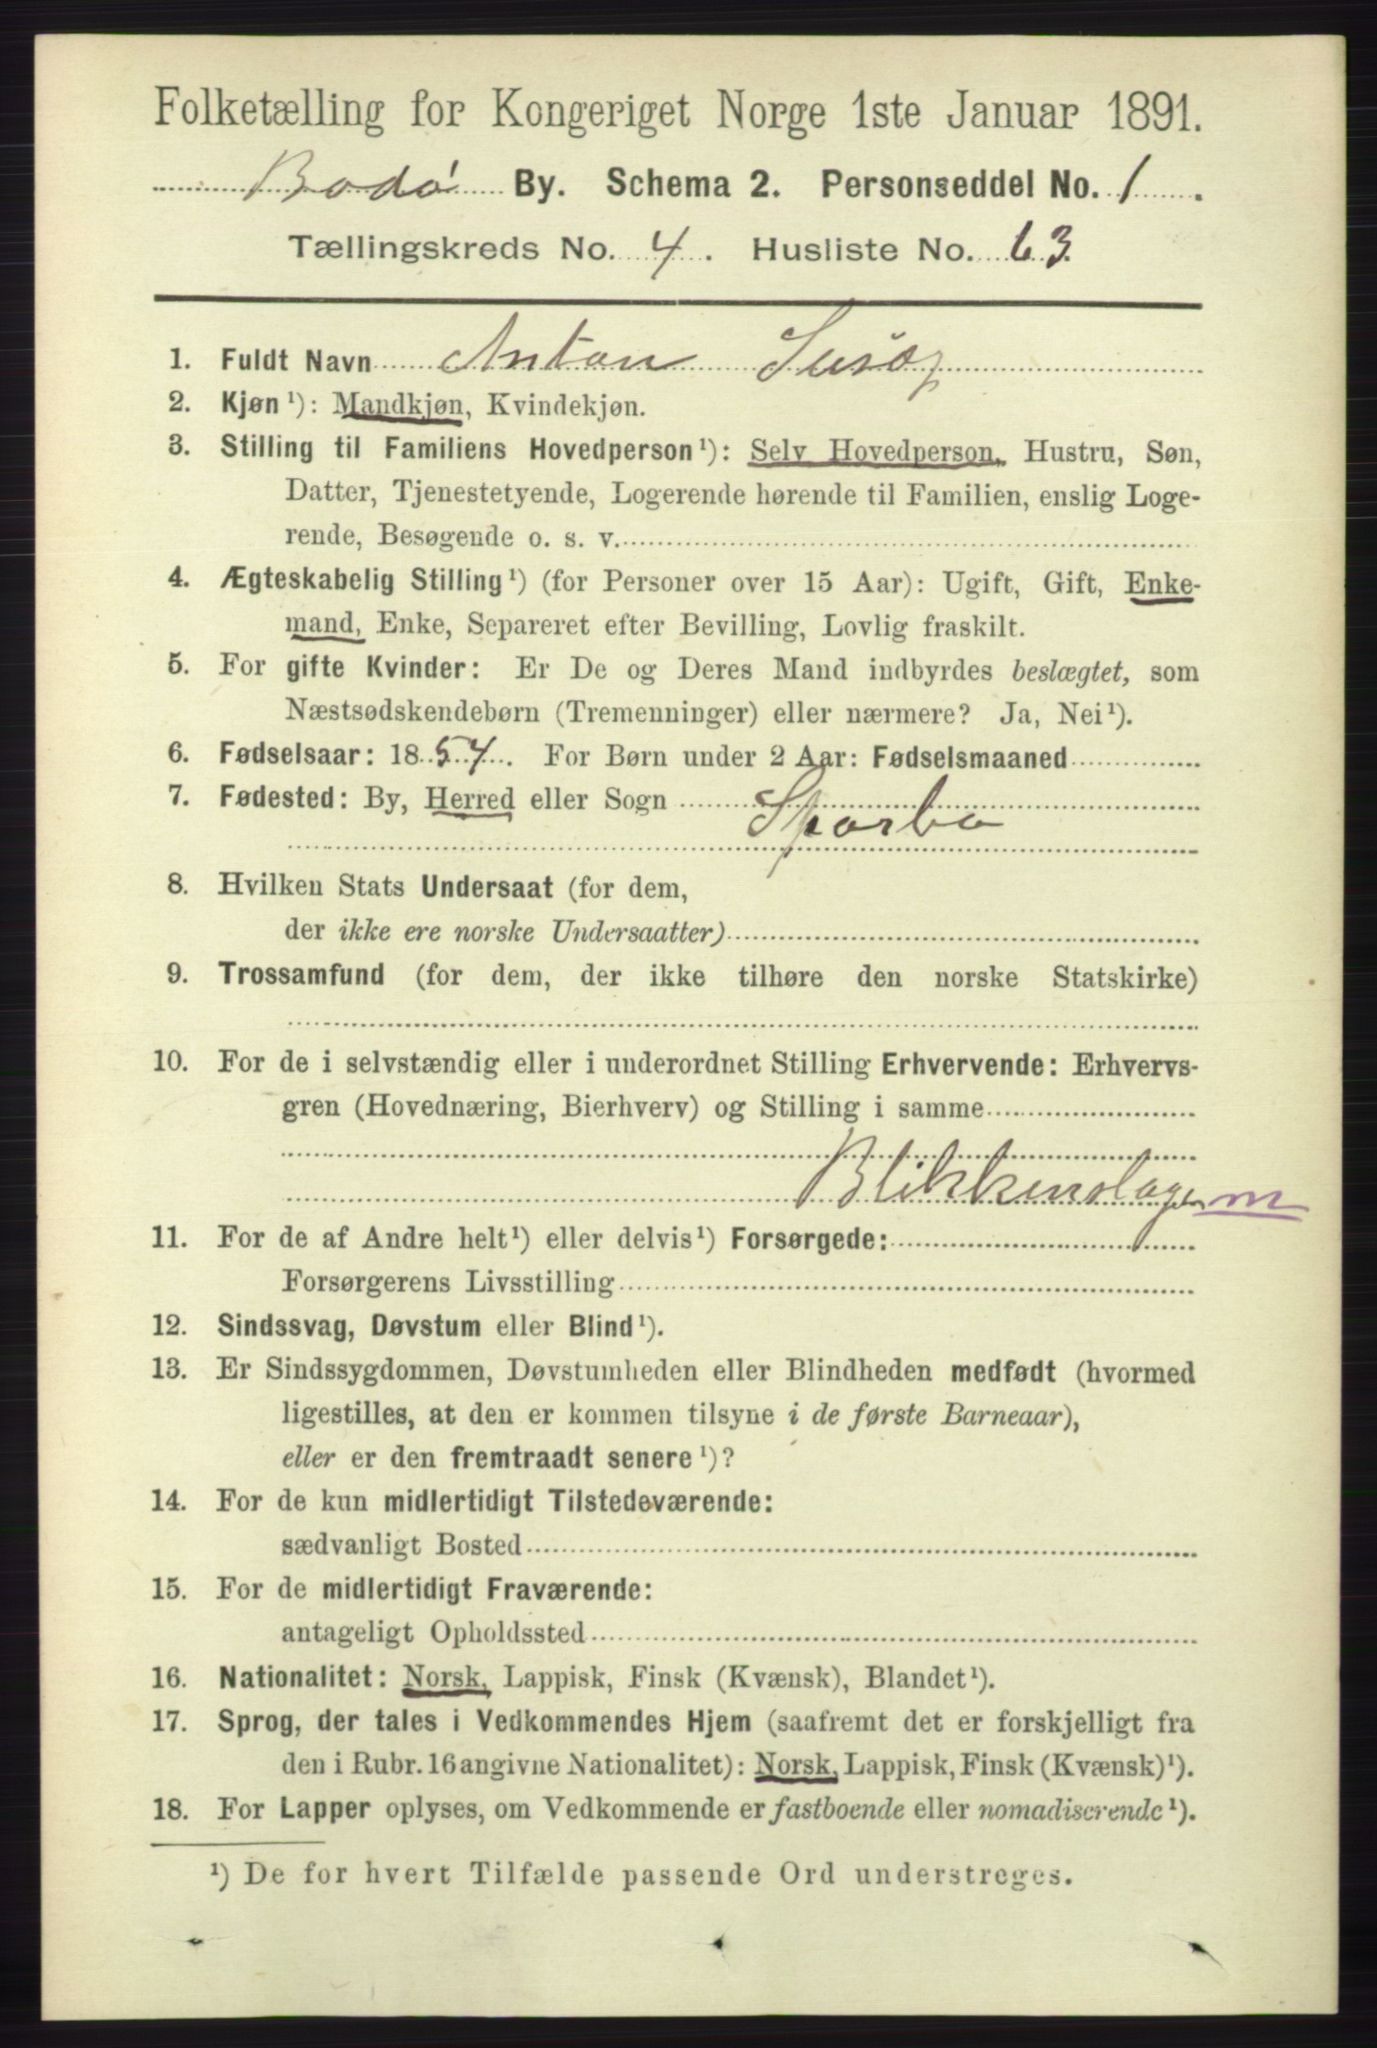 Folketælling for Kongeriget Norge 1ste Januar 1891.
Bodø By. Schema 2. Personseddel No. 1.
Tællingskreds No. 4. Husliste No. 63.
1. Fuldt Navn Anton
2. Kjøn ¹): Mandkjøn, Kvindekjøn.
3. Stilling til Familiens Hovedperson ¹): Selv Hovedperson, Hustru, Søn,
Datter, Tjenestetyende, Logerende hørende til Familien, enslig Loge-
rende, Besøgende o. s. v.
4. Ægteskabelig Stilling ¹) (for Personer over 15 Aar): Ugift, Gift, Enke-
mand, Enke, Separeret efter Bevilling, Lovlig fraskilt.
5. For gifte Kvinder: Er De og Deres Mand indbyrdes beslægtet, som
Næstsødskendebørn (Tremenninger) eller nærmere? Ja, Nei ¹).
6. Fødselsaar: 1854. For Børn under 2 Aar: Fødselsmaaned
7. Fødested: By, Herred eller Sogn Sparbo
8. Hvilken Stats Undersaat (for dem,
der ikke ere norske Undersaatter)
9. Trossamfund (for dem, der ikke tilhøre den norske Statskirke)
10. For de i selvstændig eller i underordnet Stilling Erhvervende: Erhvervs-
gren (Hovednæring, Bierhverv) og Stilling i samme
Blikkenslager m
11. For de af Andre helt ¹) eller delvis ¹) Forsørgede:
Forsørgerens Livsstilling
12. Sindssvag, Døvstum eller Blind ¹).
13. Er Sindssygdommen, Døvstumheden eller Blindheden medfødt (hvormed
ligestilles, at den er kommen tilsyne i de første Barneaar),
eller er den fremtraadt senere ¹)?
14. For de kun midlertidigt Tilstedeværende:
sædvanligt Bosted
15. For de midlertidigt Fraværende:
antageligt Opholdssted
16. Nationalitet: Norsk, Lappisk, Finsk (Kvænsk), Blandet ¹).
17. Sprog, der tales i Vedkommendes Hjem (saafremt det er forskjelligt fra
den i Rubr. 16 angivne Nationalitet): Norsk, Lappisk, Finsk (Kvænsk) ¹).
18. For Lapper oplyses, om Vedkommende er fastboende eller nomadiserende ¹).
¹) De for hvert Tilfælde passende Ord understreges.